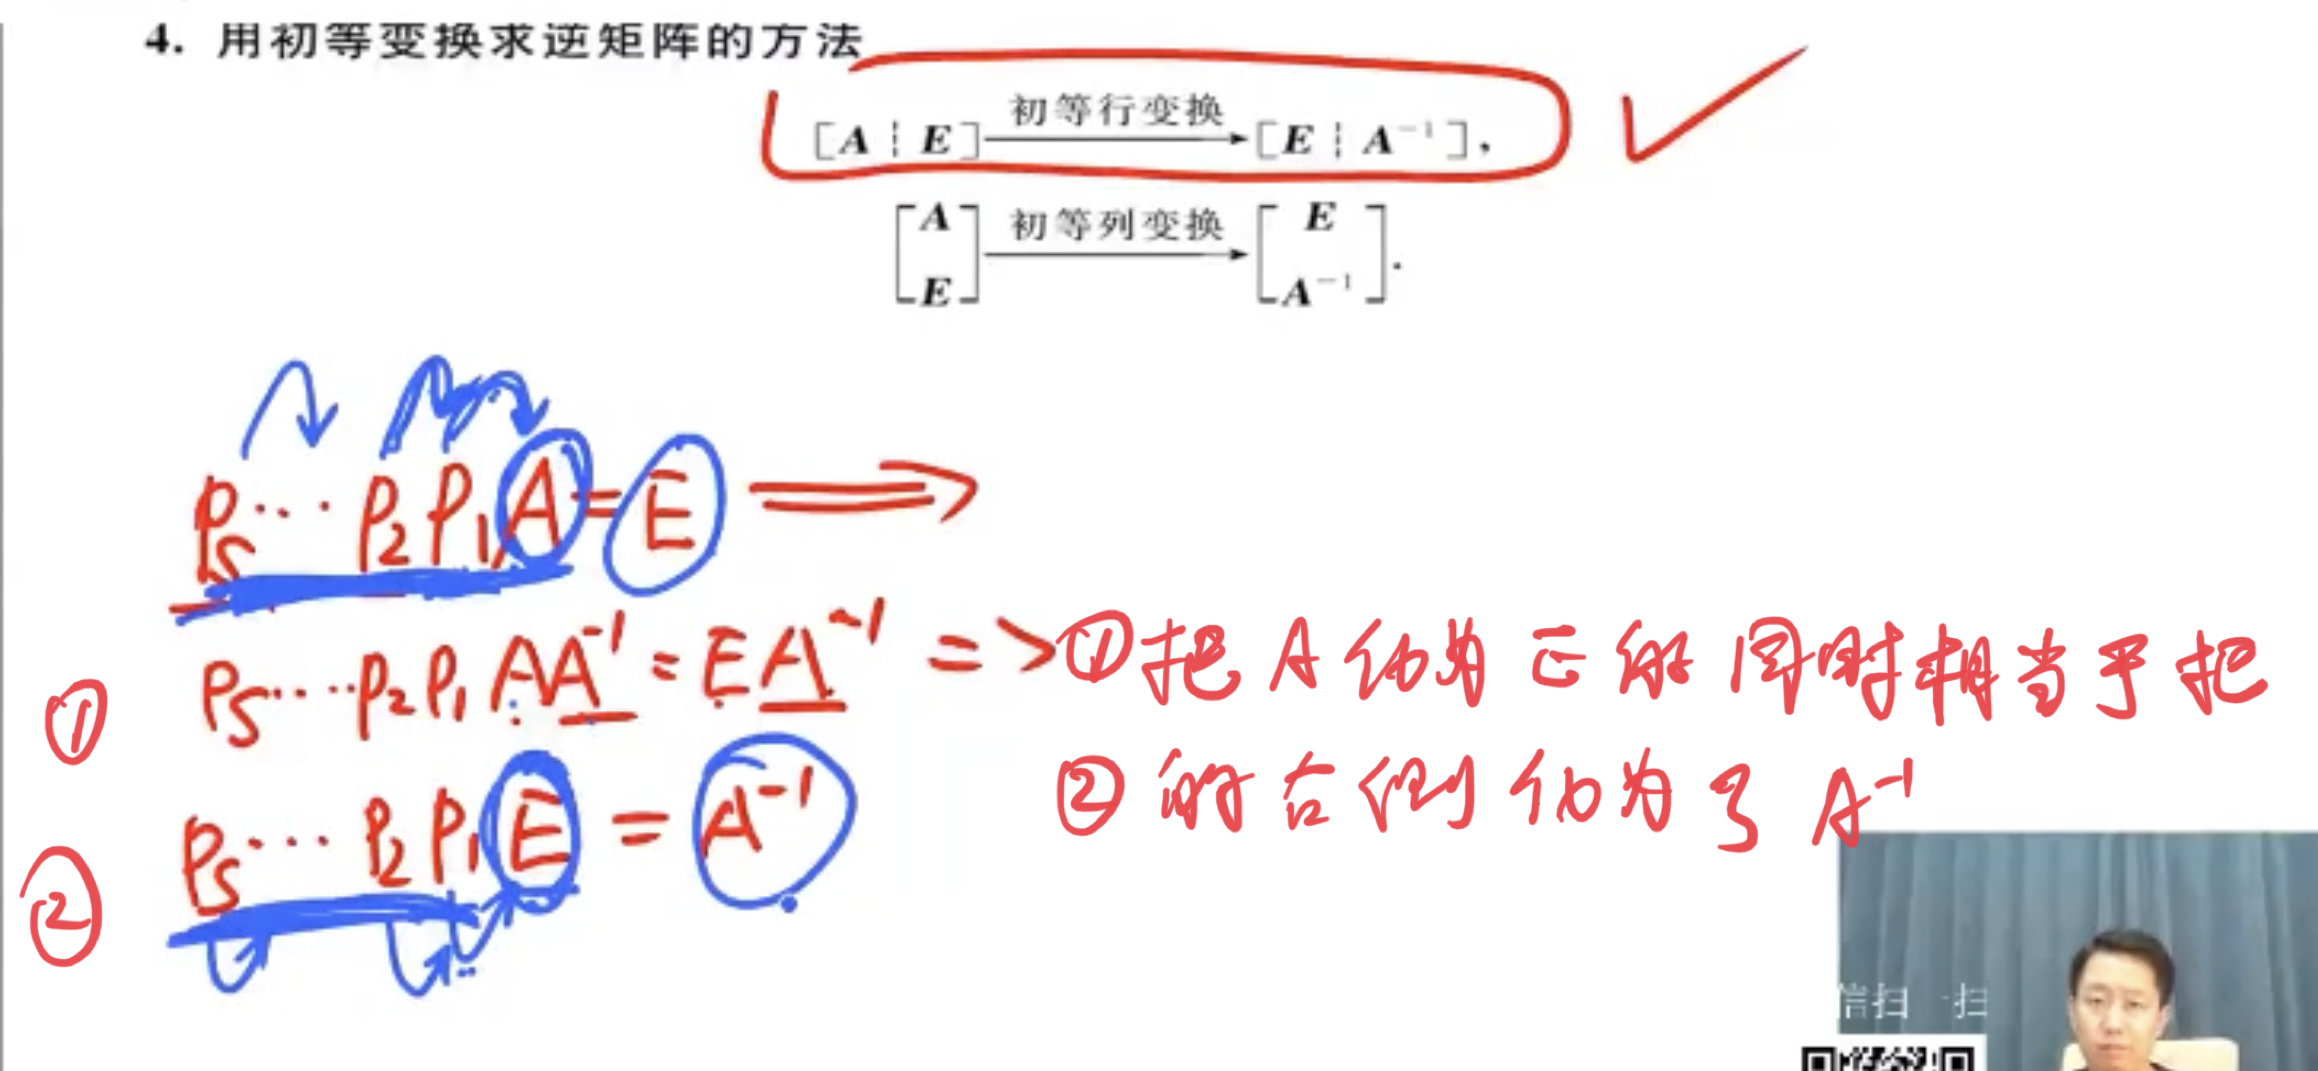 4. 用初等变换求逆矩阵的方法
[A ┆ E] 初等行变换 → [E ┆ A⁻¹],
[A E] 初等列变换 → [E A⁻¹].
Pₛ … P₂ P₁ A = E ⟹
① Pₛ … P₂ P₁ A A⁻¹ = E A⁻¹ => ① 把 A 化为 E 的 同时 相当于 把
② Pₛ … P₂ P₁ E = A⁻¹ ② 的 右侧 化为了 A⁻¹
信扫一扫